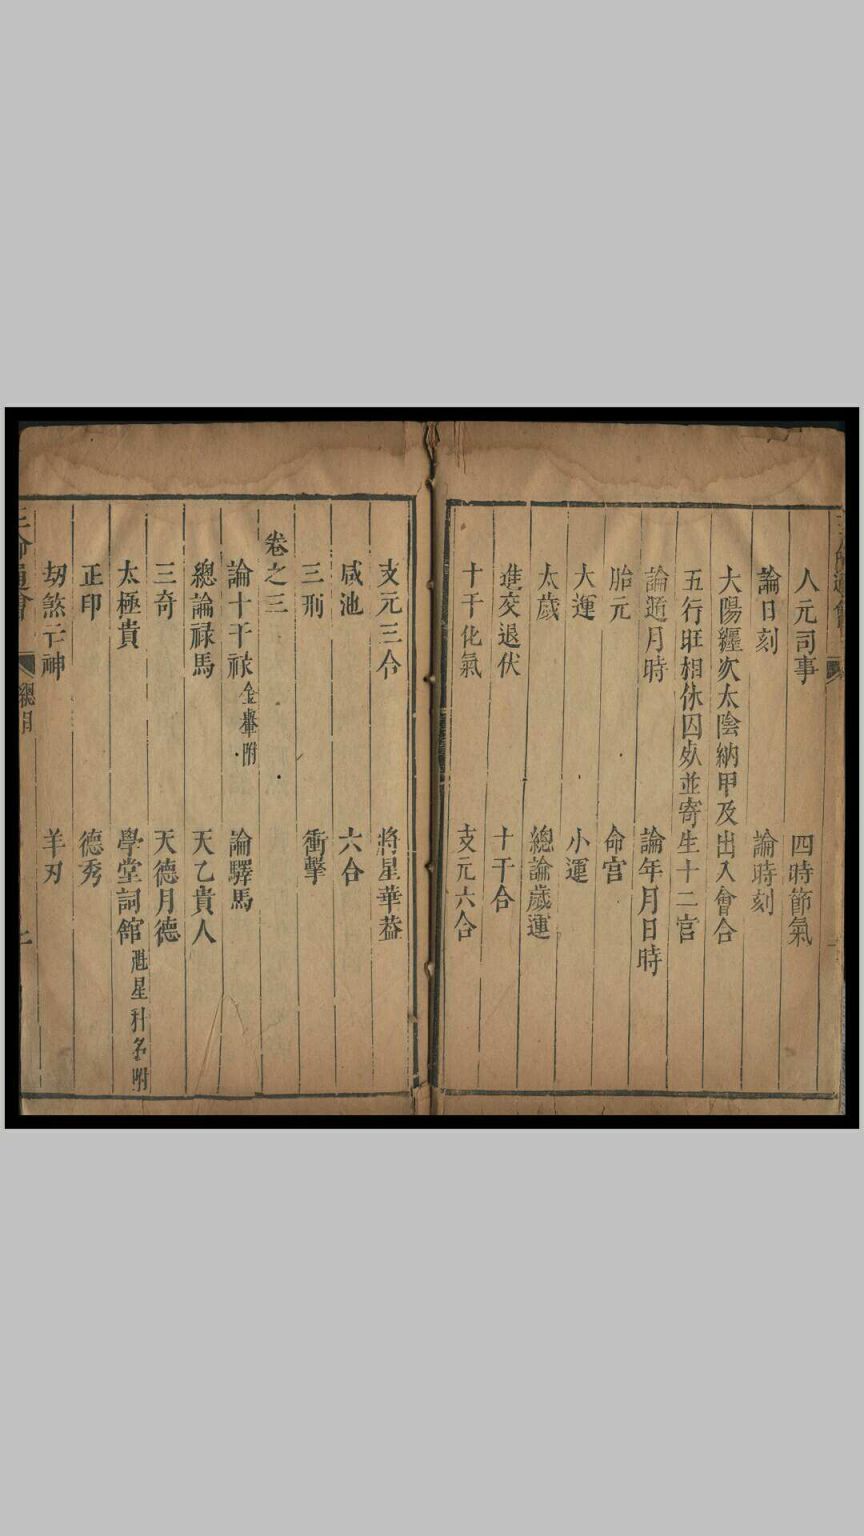 人元司事 四時節氣
論日刻 論時刻
大陽纏次太陰納甲及出入會合
五行旺相休囚死並寄生十二宮
論遁月時 論年月日時
胎元 命宮
大運 小運
太歲 總論歲運
進交退伏 十干合
十干化氣 支元六合
支元三合 將星華葢
咸池 六合
三刑 衝擊
卷之三
論十干祿 金轝附 論驛馬
總論祿馬 天乙貴人
三奇 天德月德
太極貴 學堂詞館 魁星科名附
正印 德秀
劫煞亡神 羊刃